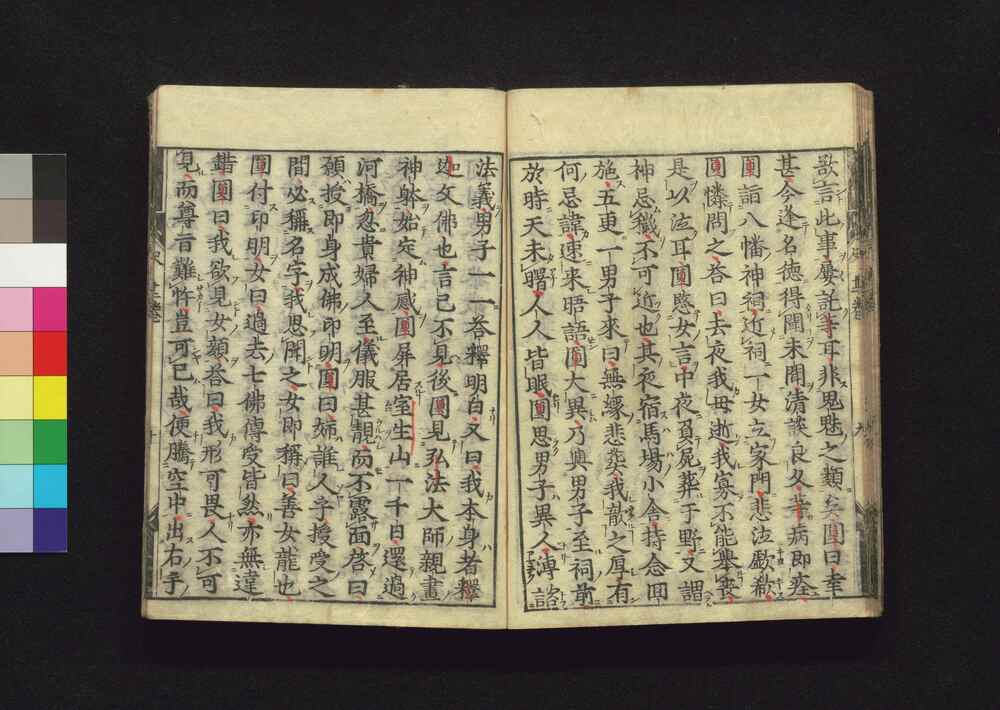 歌言此事屢託等耳非鬼魅之類矣圓曰幸
甚今逢名德得聞未聞清談良久等病即痊
圓詣八幡神祠近祠一女立家門悲泣歔欷
圓憐問之答曰去夜我母逝我寡不能舉喪
是以泣耳圓愍女言中夜負屍葬于野又謂
神忌穢不可近也其夜宿馬場小舍持念回
施五更一男子來曰無緣悲葬我歆之厚有
何忌諱速来晤語圓大異乃與男子至祠前
於時天未曙人人皆眠圓思男子異人溥諮
法義男子一一答釋明白又曰我本身者釋
迦文佛也言已不見後圓見弘法大師親畫
神躰始定神感圓屏居室生山一千日還過
河橋忽貴婦人至儀服甚靚而不露面啓曰
願授即身成佛印明圓曰姉誰人乎授受之
間必稱名字我思聞之女即稱曰善女龍也
圓付印明女曰過去七佛傳受皆然亦無違
錯圓曰我欲見女顏答曰我形可畏人不可
見而尊言難忤豈可已哉便騰空中出右手